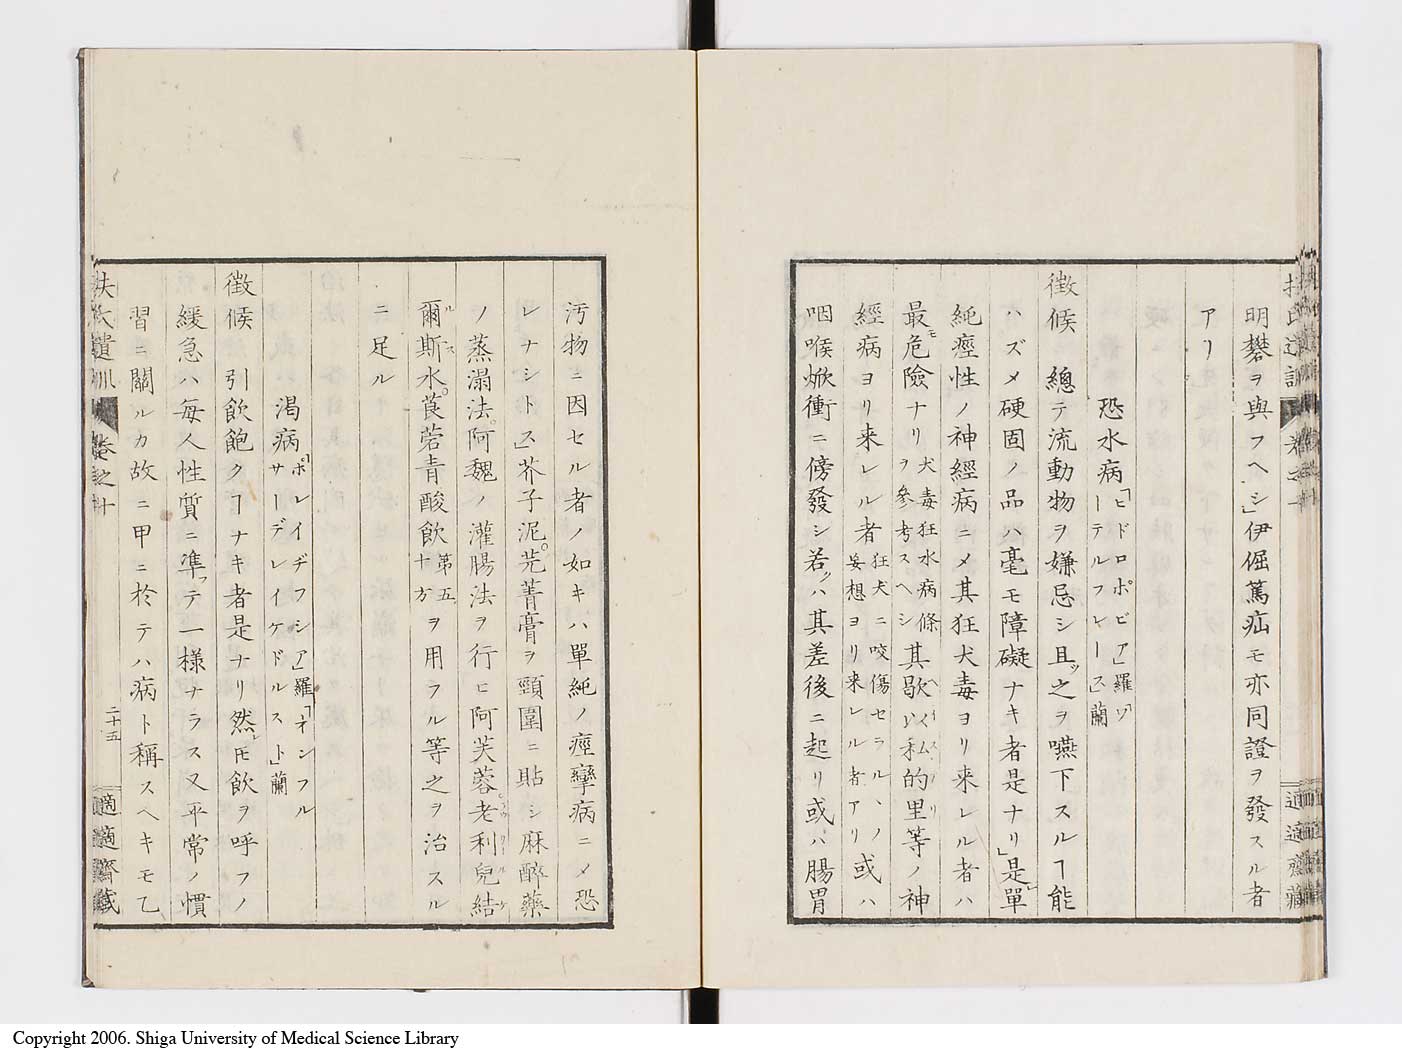 明礬ヲ與フヘシ」伊倔篤㽲モ亦同證ヲ發スル者
アリ
恐水病「ヒドロポビア」羅「ワーテルフレース」蘭
徴候 總テ流動物ヲ嫌忌シ且ツ之ヲ嚥下スルヿ能
ハズメ硬固ノ品ハ毫モ障礙ナキ者是ナリ」是レ單
純痙性ノ神經病ニメ其狂犬毒ヨリ来レル者ハ
最モ危險ナリ犬毒狂水病條ヲ參考スヘシ其歇以私的里等ノ神
經病ヨリ来レル者狂犬ニ咬傷セラルヽノ妄想ヨリ来レル者アリ或ハ
咽喉焮衝ニ傍發シ若クハ其差後ニ起リ或ハ腸胃
汚物ニ因セル者ノ如キハ單純ノ痙攣病ニメ恐
レナシトス」芥子泥。芫菁膏ヲ頸圍ニ貼シ麻醉藥
ノ蒸溻法。阿魏ノ灌腸法ヲ行ヒ阿芙蓉老利兒結
爾斯水。莨菪青酸飲第五十方ヲ用フル等之ヲ治スル
ニ足ル
渇病「ポレイヂフシア」羅「ネンフルサーデレイケドルスト」蘭
徴候 引飲飽クヿナキ者是ナリ然レ𪜈飲ヲ呼フノ
緩急ハ毎人性質ニ準ツテ一様ナラス又平常ノ慣
習ニ關ルカ故ニ甲ニ於テハ病ト稱スヘキモ乙
扶氏遺訓 卷之十 二十五 適適齋藏
Copyright 2006. Shiga University of Medical Science Library